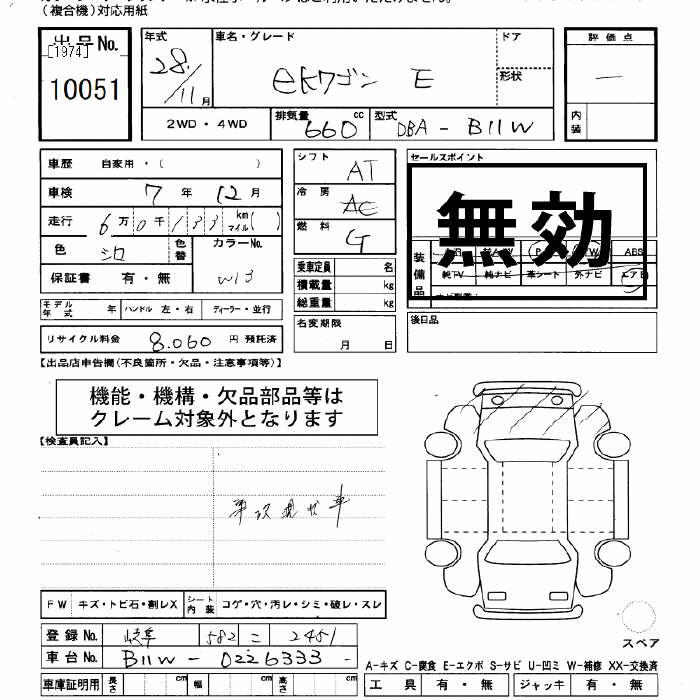 （複合機）対応用紙
出品No.
[1974]
10051
年式 28/11月
車名・グレード
ekワゴン E
ドア
形状
評価点
—
内装
2WD・4WD
排気量 660 cc
型式 DBA - B11W
車歴 自家用・（ ）
車検 7年 12月
走行 6万0千133 km マイル( )
色 シロ
色替
カラーNo. W13
保証書 有・無
モデル年式 年 ハンドル 左・右 ディーラー・並行
リサイクル料金 8,060 円 預託済
シフト AT
冷房 AC
燃料 G
乗車定員 名
積載量 kg
総重量 kg
名変期限
月 日
セールスポイント
無効
装備品
ABS
純TV 純ナビ 革シート 外ナビ エアB
後日品
【出品店申告欄(不良箇所・欠品・注意事項等)】
機能・機構・欠品部品等は
クレーム対象外となります
【検査員記入】
事故現状車
FW キズ・トビ石・割レX シート内装 コゲ・穴・汚レ・シミ・破レ・スレ
登録No. 岐阜 582 こ 2451
車台No. B11W - 0226333 -
車庫証明用 長さ cm 幅 cm 高さ cm
スペア
A-キズ C-腐食 E-エクボ S-サビ U-凹ミ W-補修 XX-交換済
工具 有・無 ジャッキ 有・無